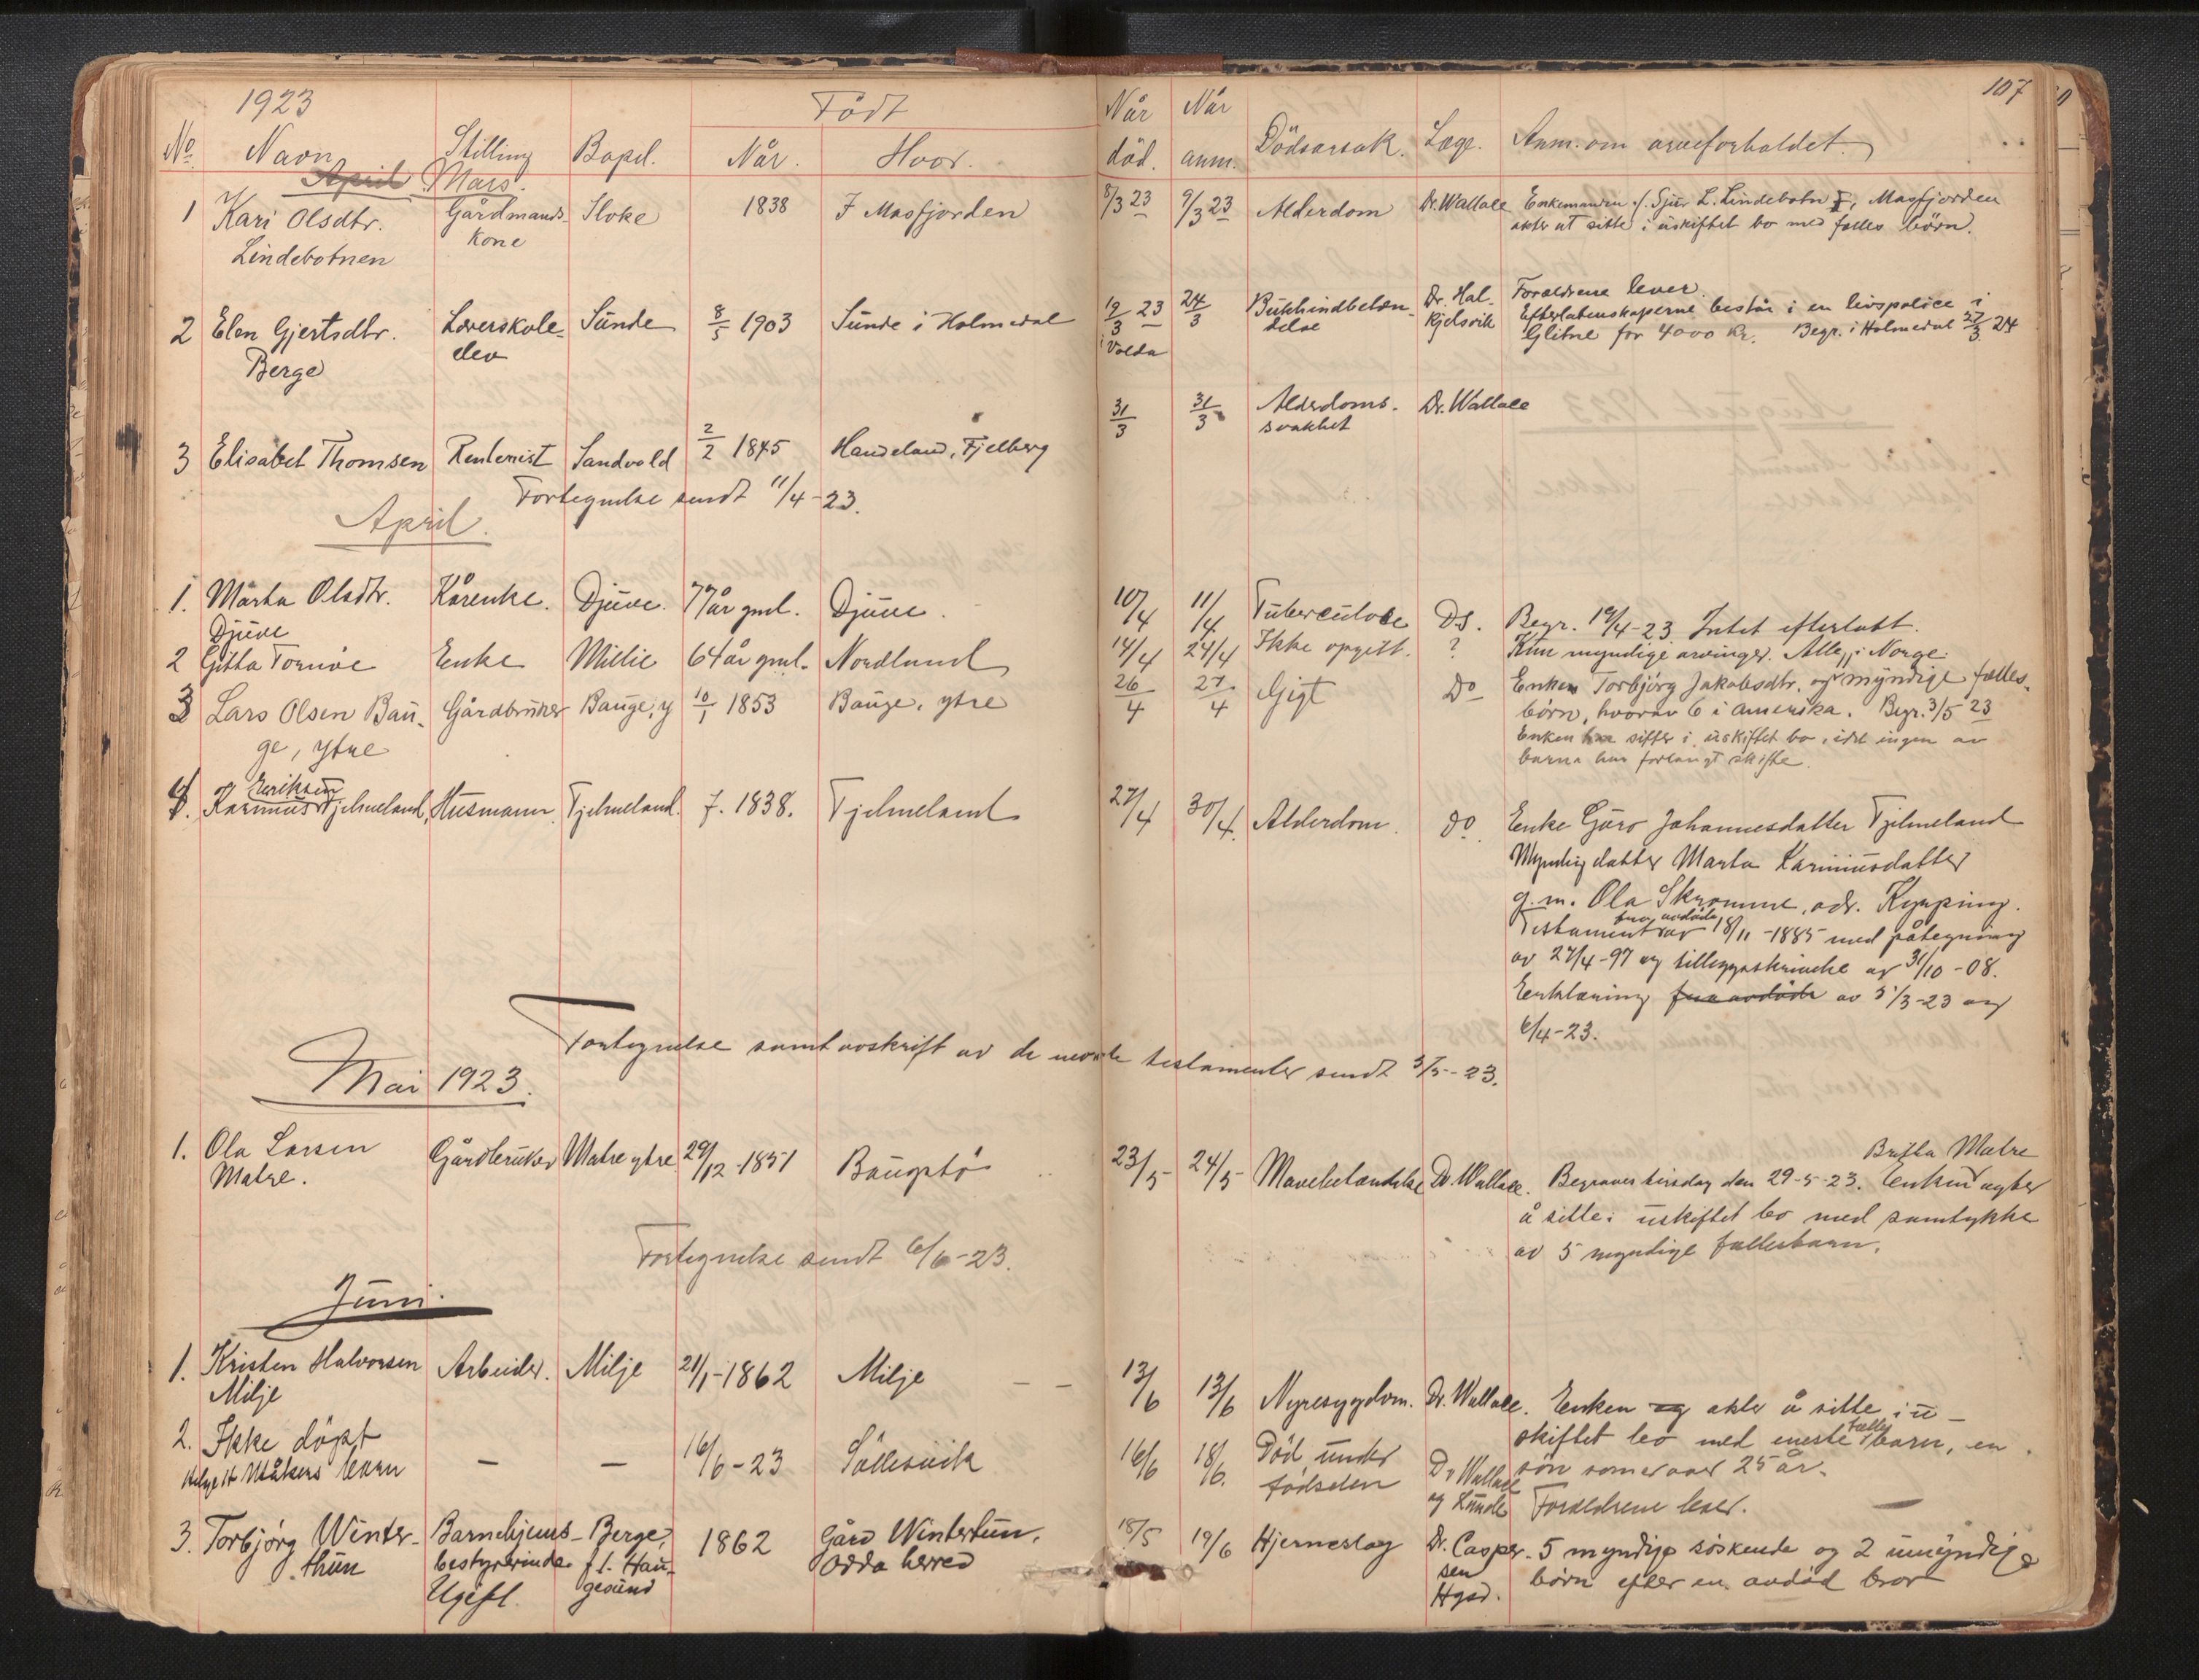 1923
Født
Når
Når
107
No.
Navn
Stilling
Bopel.
Når.
Hvor.
död.
anm.
Dödsarsak.
Læge.
Anm. om arveforholdet.
April Mars.
1 Kari Olsdtr. Gårdmands- Sloke 1838 I Masfjorden 8/3 23 9/3 23 Alderdom Dr. Wallace Enkemanden
Lindebotnen kone
akter at sitte i uskiftet bo med fælles börn.
2 Elen Gjertsdtr. Lærerskole- Sunde 8/5 1903 Sunde i Holmedal 19/3 23 24/3 Bukhindbetæn- Dr. Hal- Foreldrene lever.
Berge elev i Volda delse kjelsvik Efterlatenskaperne består i en livspolice i
Glitne for 4000 kr. Begr. i Holmedal 27/3 24
3 Elisabet Thomsen Rentenist Sandvold 2/2 1845 Handeland, Fjelberg 31/3 31/3 Alderdoms- Dr. Wallace
svakhet
Fortegnelse sendt 11/4-23.
April.
1. Marta Olsdtr. Kårenke. Djuve. 77 år gml. Djuve. 10/4 11/4 Tuberculose Ds. Begr. 19/4-23 Intet efterlatt.
Djuve
2 Gitta Tornöe Enke Millie 64 år gml. Nordland 14/4 24/4 Ikke opgitt. ? Kun myndige arvinger. Alle i Norge.
3 Lars Olsen Bau- Gårdbruker Bauge, y 10/1 1853 Bauge, ytre 26/4 27/4 Gigt Do Enken Torbjörg Jakobsdtr. og myndige fælles-
ge, ytre börn, hvorav 6 i Amerika. Begr. 3/5 23
Enken har sitter i uskiftet bo, idet ingen av
barna har forlangt skifte.
4. Rasmus Eriksen Tjelmeland, Husmann. Tjelmeland. f. 1838. Tjelmeland 27/4 30/4. Alderdom. do. Enke Guro Johannesdatter Tjelmeland
Myndig datter Marta Rasmusdatter
g. m. Ola Skromme, adr. Kyrping.
Testament fra avdöde av 18/11-1885 med påtegning
av 27/4-97 og tilleggsskrivelse av 31/10-08.
Erklæring fra avdöde av 5/3-23 og
6/4-23.
Fortegnelse samt avskrift av de nevnte testamenter sendt 3/5-23.
Mai 1923.
1. Ola Larsen Gårdbruker Matre ytre 29/12-1851 Baugstö 23/5 24/5 Mavebetændelse Dr. Wallace. Begraves tirsdag den 29-5-23. Enken Britta Matre agter
Matre. å sitte i uskiftet bo med samtykke
av 5 myndige fællesbarn.
Fortegnelse sendt 6/6-23.
Juni.
1. Kristen Halvorsen Arbeider. Milje 21/1-1862 Milje 13/6 13/6 Nyresygdom. Dr. Wallace. Enken og akter å sitte i u-
Milje skiftet bo med eneste fælles barn, en
sön som er over 25 år.
2. Ikke döpt — — 16/6-23 Söllesvik 16/6 18/6. Död under Dr Wallace Foreldrene lever. —
Utåkers barn fødselen og
3. Torbjörg Winter- Barnehjems- Berge, 1862 Gård Wintertun, 18/5 19/6 Hjerneslag Dr. Casper- 5 myndige söskende og 2 umyndige
thun bestyrerinde f. t. Hau- Odda herred sen börn efter en avdöd bror
Ugift. gesund Hgsd.